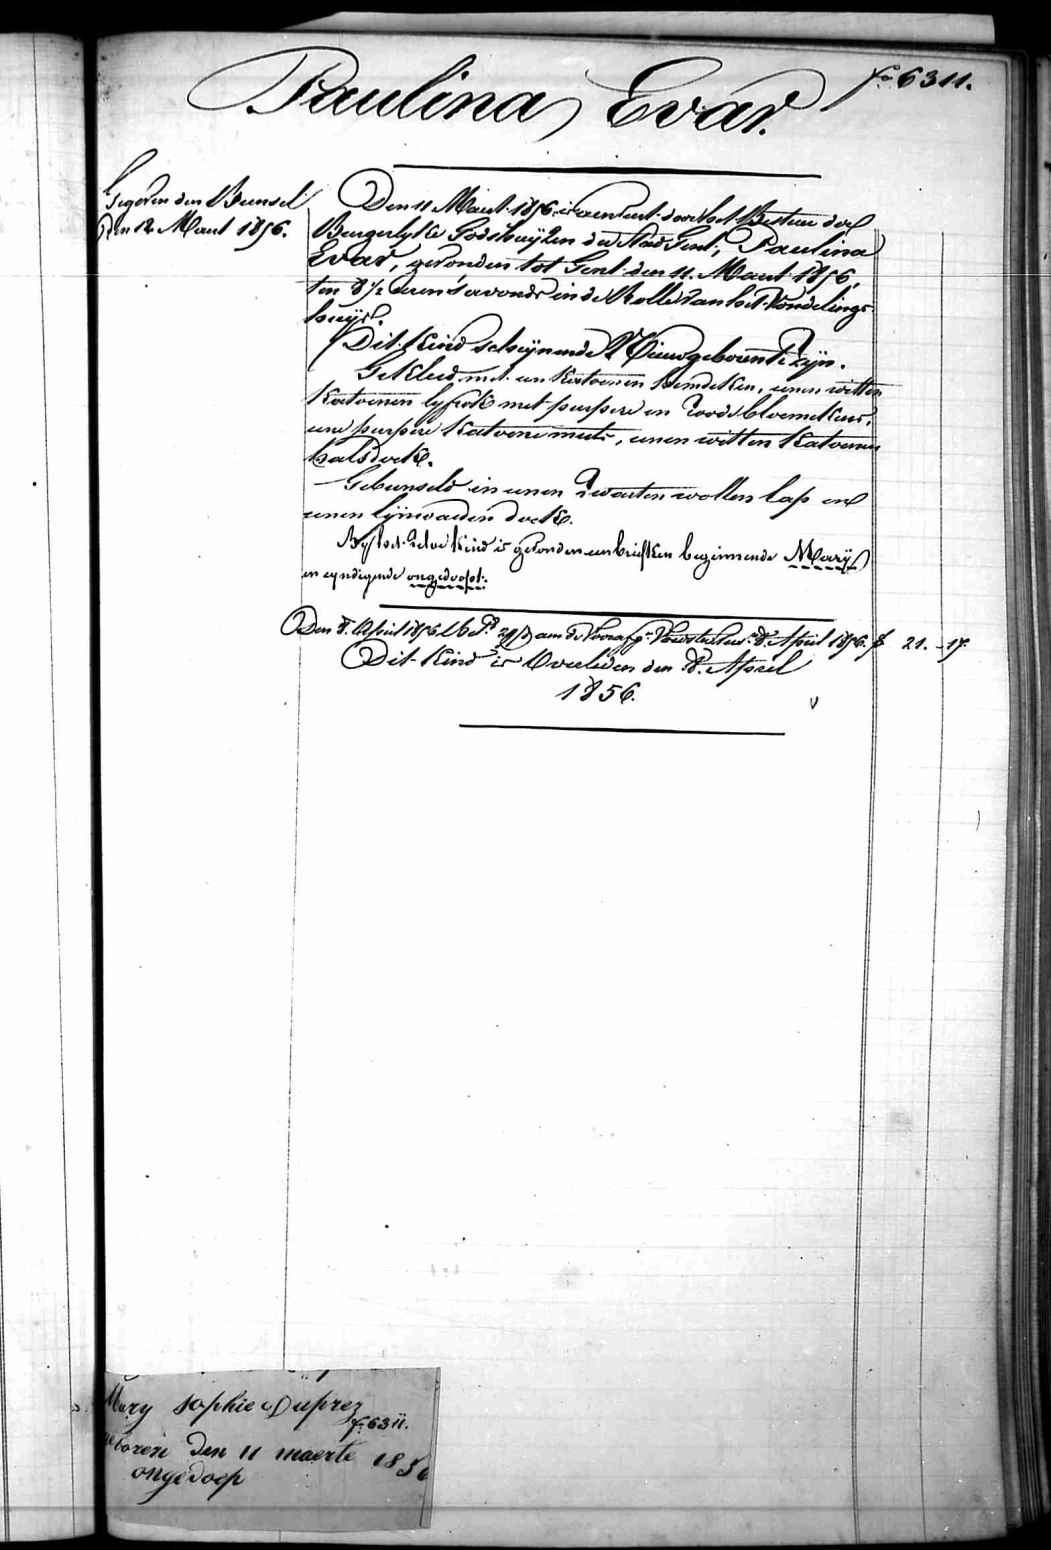 fo 6311.
Paulina Evar.
Gegeven den Bunsel
Den 12 Maert 1856.
Den 11 Maert 1856, is aenveert door het Bestuer der
Burgerlyke Godshuyzen der Stad Gent, Paulina
Evar, gevonden tot Gent den 11. Maert 1856,
ten 8 1/2 uren 's avonds in de Rolle van het Vondelings
huys.
Dit Kind schynende Nieuwgeboren te zyn.
Gekleed met een Katoenen hemdeken, eenen witten
Katoenen lyfrok met purpere en roode bloemekens,
eene purpere Katoene muts, eenen witten Katoenen
halsdoek.
Gebunseld in eenen zwarten wollen lap en
eenen lynwaeden doek.
By het zelve kind is gevonden een briefken beginnende Mary
en eyndigende ongedoopt.
Den 8. April 1856 aen de 8. April 1856. 21. - 17.
Dit Kind is Overleden den 8. April
1856.
Mary Sophie Duprez
fo 6311.
geboren den 11 maerte 1856
ongedoep